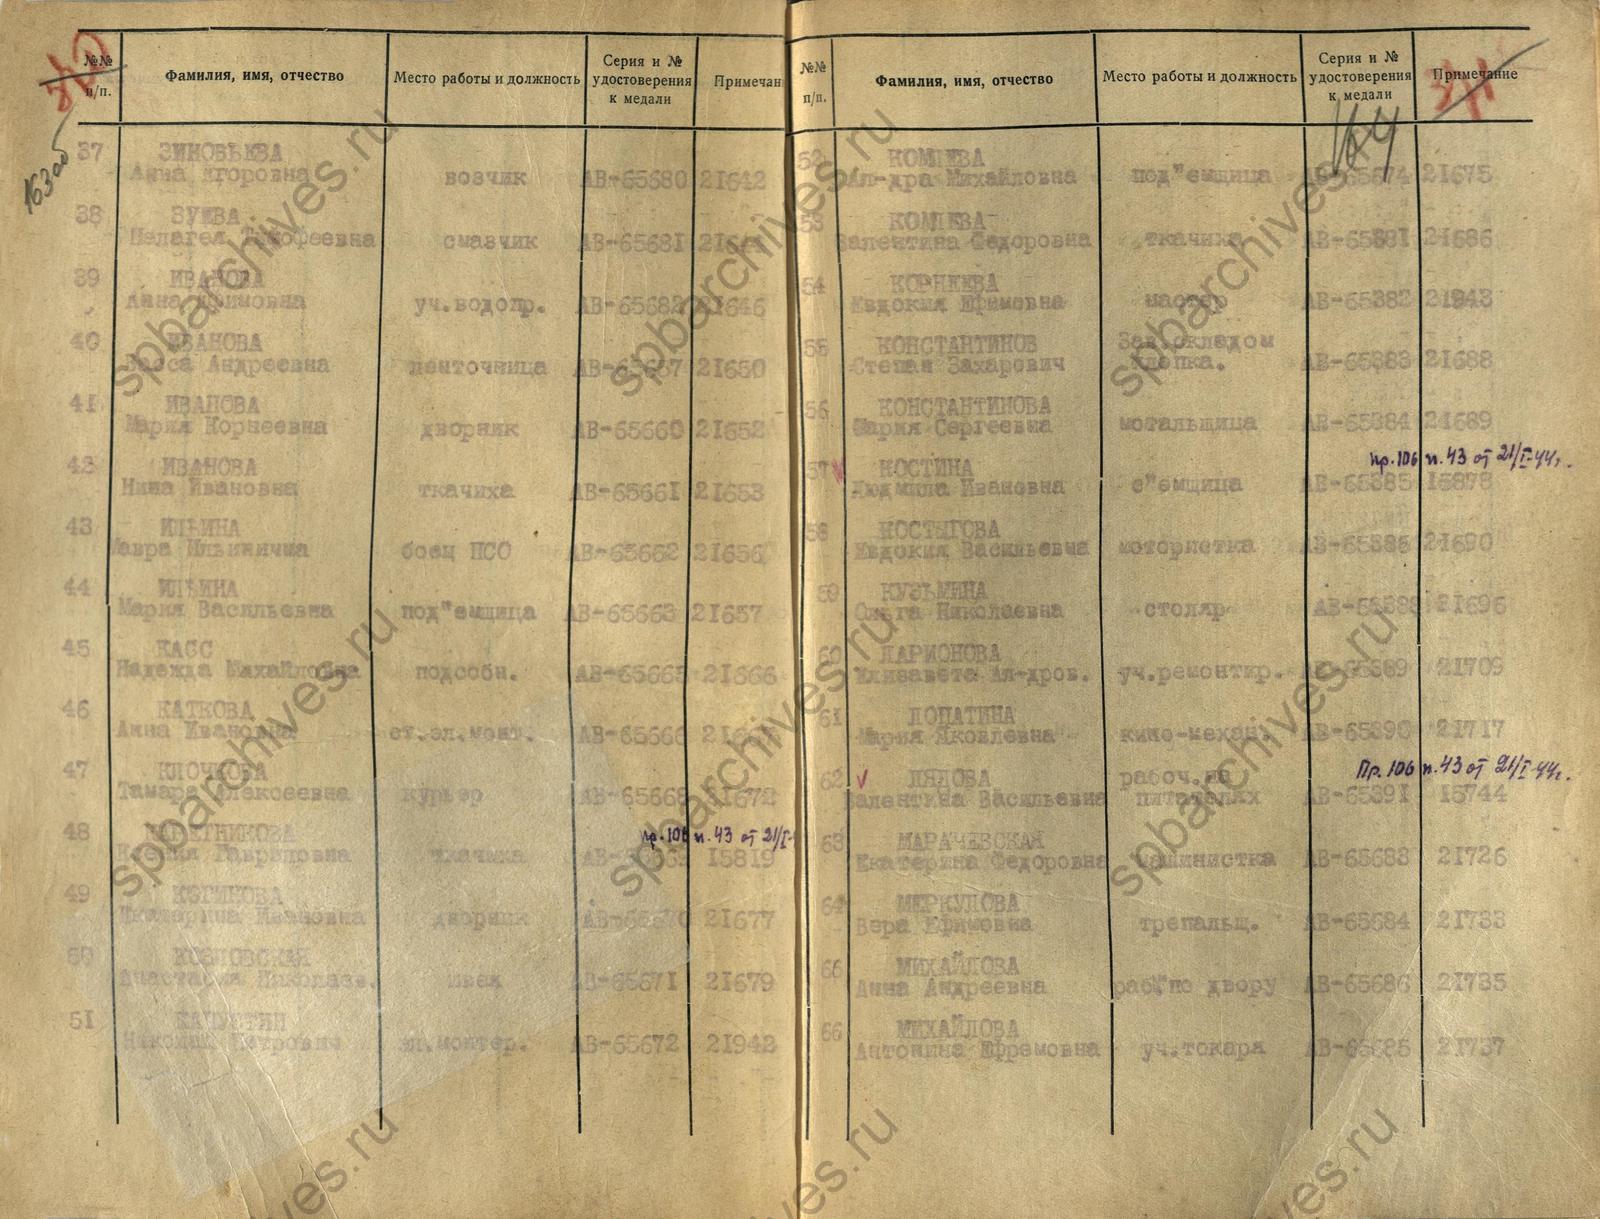 №№ п/п. Фамилия, имя, отчество Место работы и должность Серия и № удостоверения к медали Примечан
163об
37 ЗИНОВЬЕВА
Анна Егоровна возчик АВ-65680 21642
38 ЗУЕВА
Пелагея Тимофеевна смазчик АВ-65681
39 ИВАНОВА
Анна Ефимовна уч.водопр. АВ-65682 21646
40 ИВАНОВА
Васса Андреевна ленточница АВ-65657 21650
41 ИВАНОВА
Мария Корнеевна дворник АВ-65660 21652
42 ИВАНОВА
Нина Ивановна ткачиха АВ-65661 21653
43 ИЛЬИНА
Мавра Ильинична боец ПСО АВ-65662 21656
44 ИЛЬИНА
Мария Васильевна под"емщица АВ-65663 21657
45 КАСС
Надежда Михайловна подсобн. АВ-65665 21666
46 КАТКОВА
Анна Ивановна ст.эл.монт. АВ-65666
47 КЛОЧКОВА
Тамара Алексеевна курьер АВ-65668 21672
48 пр.106 п.43 от 21/I-
Ксения Гавриловна ткачиха 15819
49
Екатерина Ивановна дворник АВ-65670 21677
50 КОЗЛОВСКАЯ
Анастасия Николаев. швея АВ-65671 21679
51 КАПУСТИН
Николай Петрович эл.монтер. АВ-65672 21942
№№ п/п. Фамилия, имя, отчество Место работы и должность Серия и № удостоверения к медали Примечание
164
52 КОМЛЕВА
Ал-дра Михайловна под"емщица АВ-65674 21675
53 КОМЛЕВА
Валентина Федоровна ткачиха АВ-65381 21686
54 КОРНЕЕВА
Евдокия Ефемовна мастер АВ-65382 21943
55 КОНСТАНТИНОВ Зав.складом
Степан Захарович хлопка. АВ-65383 21688
56 КОНСТАНТИНОВА
Мария Сергеевна мотальщица АВ-65384 21689
57 V КОСТИНА пр.106 п.43 от 21/I-44г.
Людмила Ивановна с"емщица АВ-65385 15878
58 КОСТЫГОВА
Евдокия Васильевна мотористка АВ-65386 21690
59 КУЗЬМИНА
Ольга Николаевна столяр АВ-65388 21696
60 ЛАРИОНОВА
Елизавета Ал-дров. уч.ремонтир. АВ-65389 21709
61 ЛОПАТИНА
Мария Яковлевна кино-механ. АВ-65390 21717
62 V ЛЯДОВА рабоч.на Пр.106 п.43 от 21/I-44г.
Валентина Васильевна питателях АВ-65391 15744
63 МАРАЧЕВСКАЯ
Екатерина Федоровна машинистка АВ-65683 21726
64 МЕРКУЛОВА
Вера Ефимовна трепальщ. АВ-65684 21733
65 МИХАЙЛОВА
Анна Андреевна раб.по двору АВ-65686 21735
66 МИХАЙЛОВА
Антонина Ефремовна уч.токаря АВ-65685 21737
spbarchives.ru
spbarchives.ru
spbarchives.ru
spbarchives.ru
spbarchives.ru
spbarchives.ru